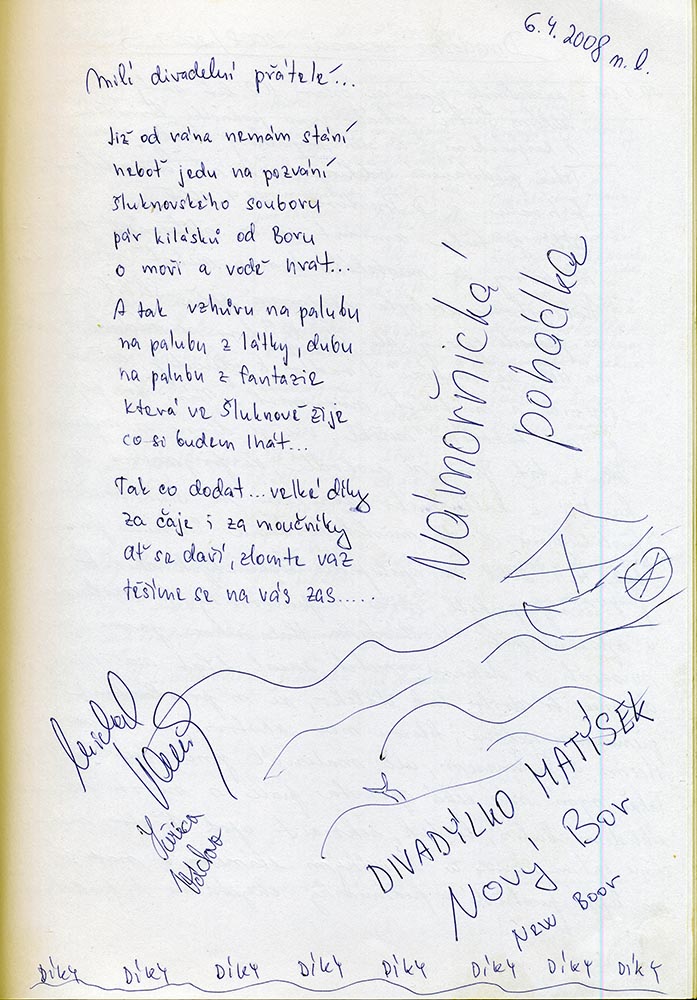 6.4.2008 n.l.
Milí divadelní přátelé...
Již od rána nemám stání
neboť jedu na pozvání
Šluknovského souboru
pár kilásků od Boru
o moři a vodě hrát...
A tak vzhůru na palubu
na palubu z látky, dubu
na palubu z fantazie
která ve Šluknově žije
co si budem lhát...
Tak co dodat... velké díky
za čaje i za moučníky
ať se daří, zlomte vaz
těšíme se na vás zas.....
Námořnická
pohádka
Michal
DIVADÝLKO MATÝSEK
Nový Bor
New Boor
DÍKY DÍKY DÍKY DÍKY DÍKY DÍKY DÍKY DÍKY